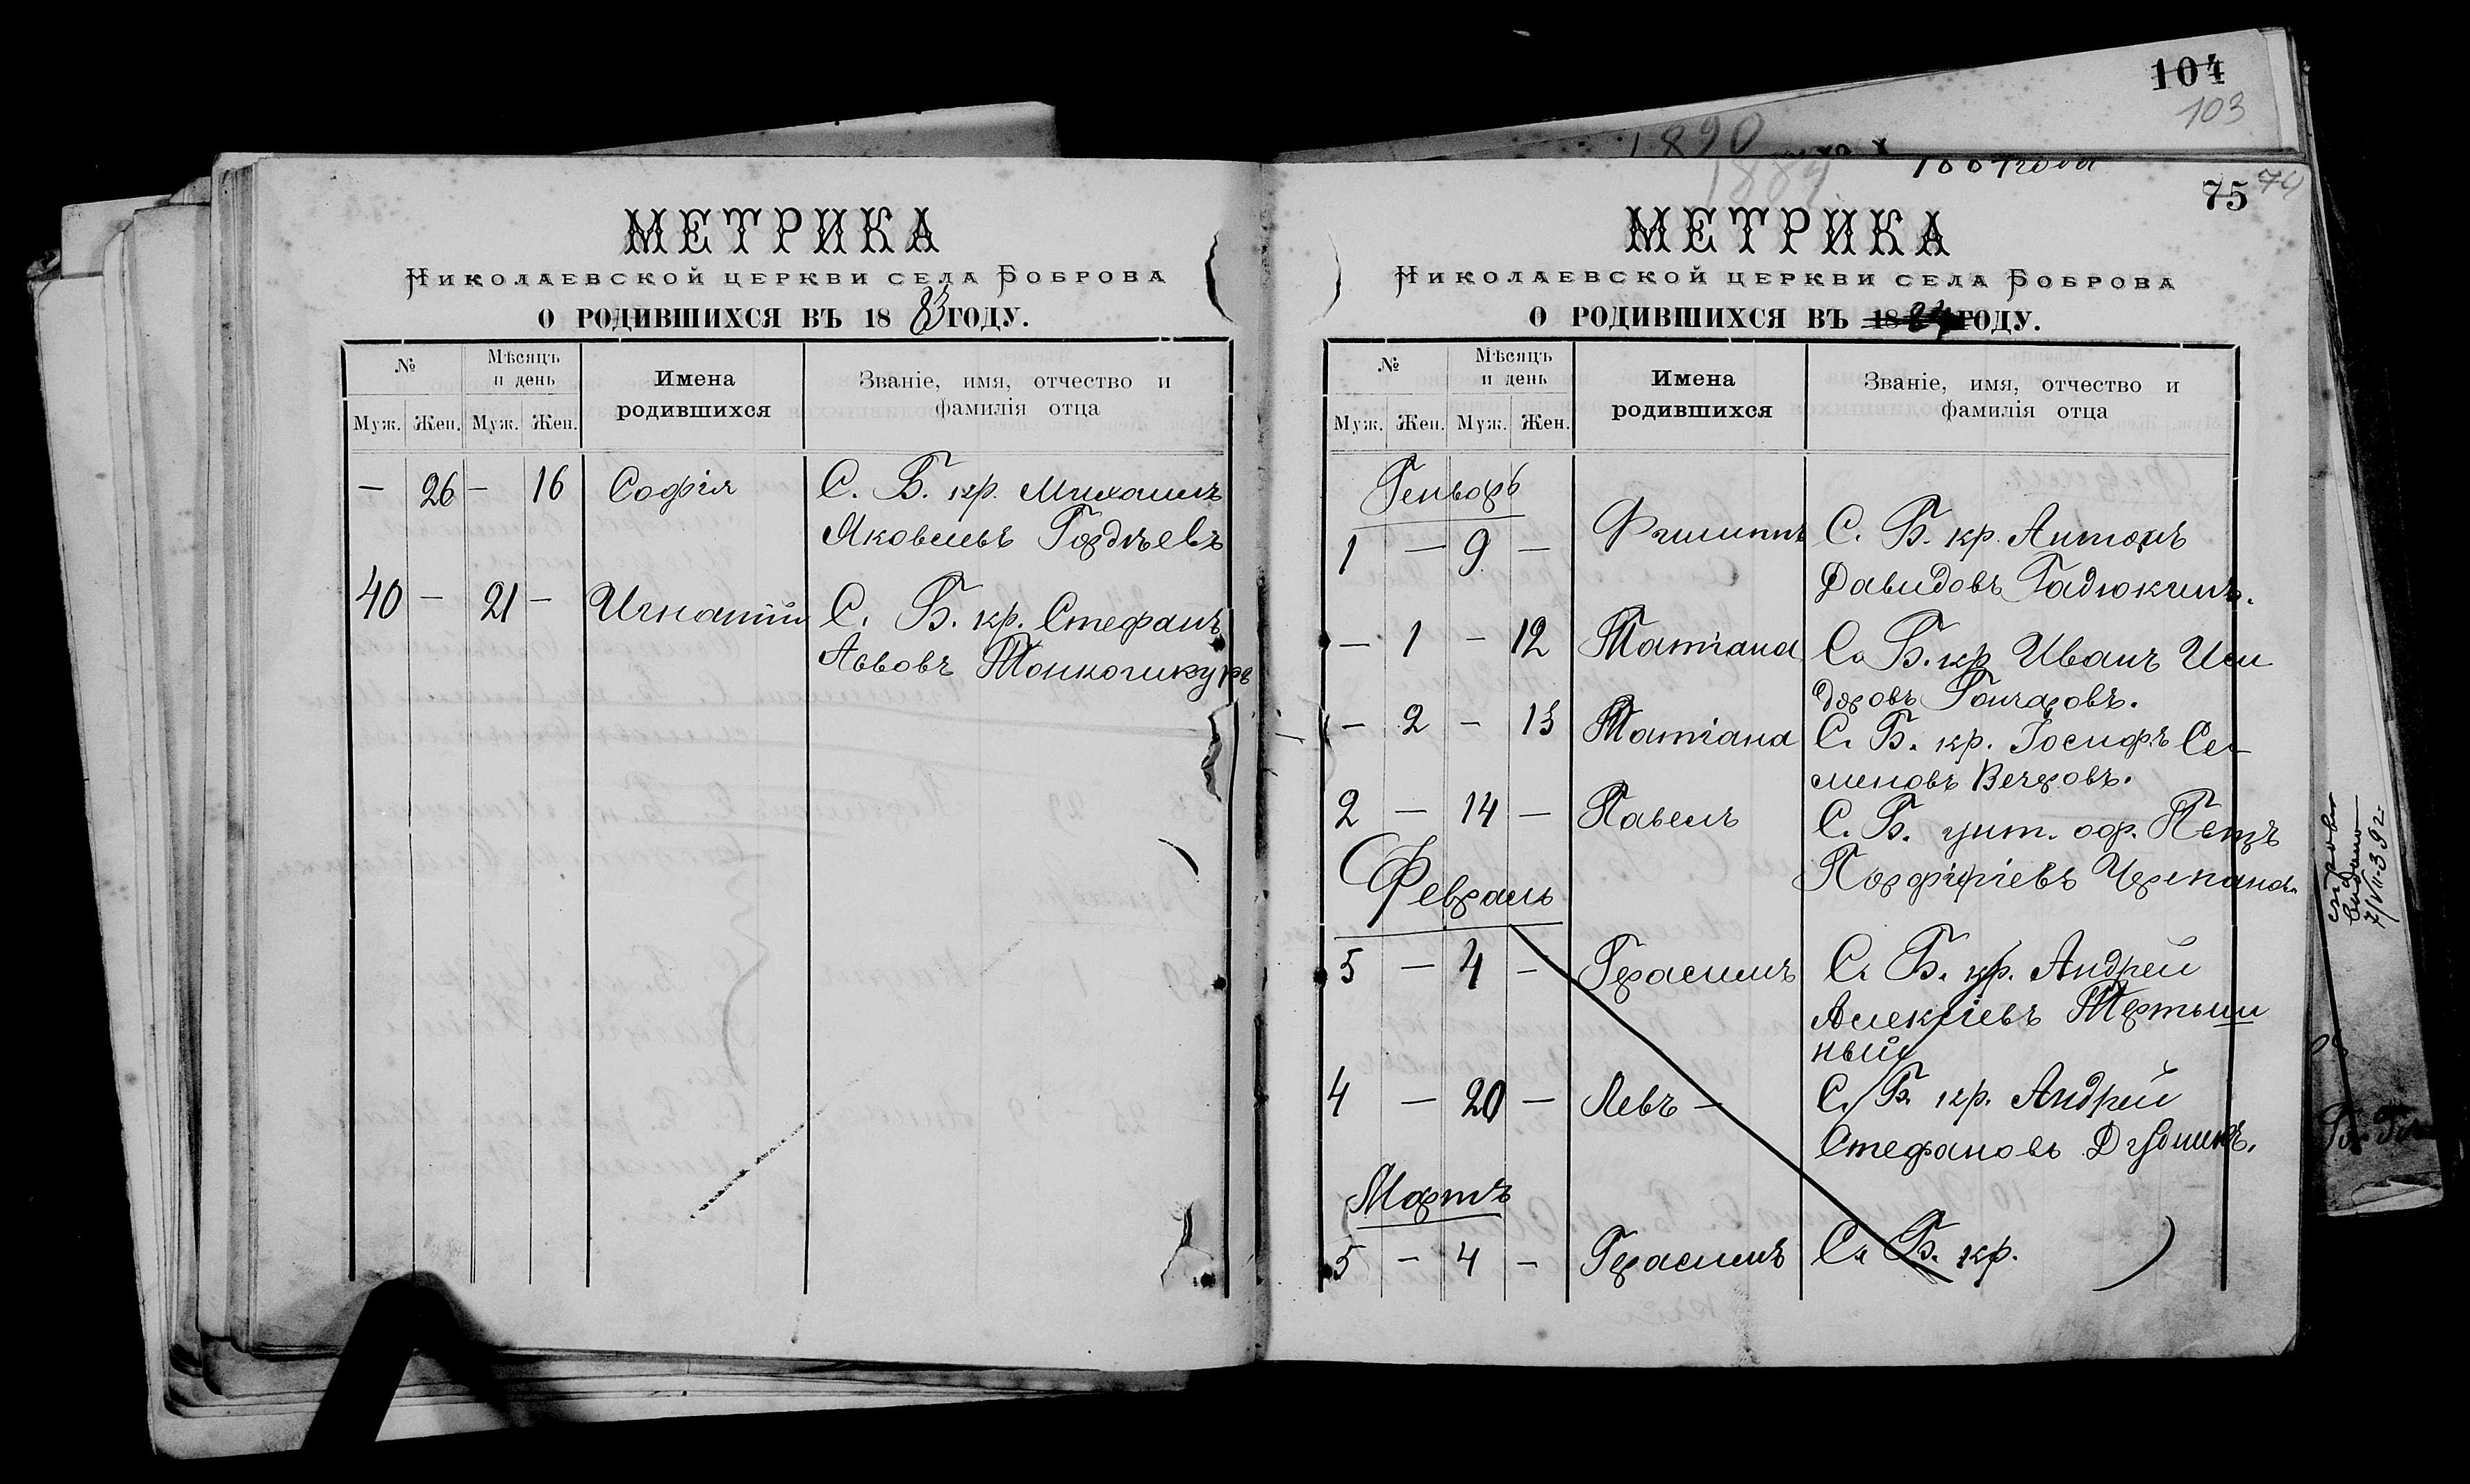 104
103
1890
1884
1884 года
МЕТРИКА
НИКОЛАЕВСКОЙ ЦЕРКВИ СЕЛА БОБРОВА
О РОДИВШИХСЯ ВЪ 18 83 ГОДУ.
№
Мѣсяцъ и день
Имена родившихся
Званіе, имя, отчество и фамилія отца
Муж. Жен. Муж. Жен.
— 26 — 16 Софія С. Б. кр. Михаилъ
Яковлевъ Гордѣевъ
40 — 21 — Игнатій С. Б. кр. Стефанъ
Аввовъ Тонкошкуръ
75 74
МЕТРИКА
НИКОЛАЕВСКОЙ ЦЕРКВИ СЕЛА БОБРОВА
О РОДИВШИХСЯ ВЪ 1884 ГОДУ.
№
Мѣсяцъ и день
Имена родившихся
Званіе, имя, отчество и фамилія отца
Муж. Жен. Муж. Жен.
Генварь
1 — 9 — Филиппъ С. Б. кр. Антонъ
Давидовъ Гадюкинъ.
— 1 — 12 Татіана С. Б. кр. Иванъ Иси
доровъ Гончаровъ.
— 2 — 13 Татіана С. Б. кр. Іосифъ Се-
меновъ Вечеровъ.
2 — 14 — Павелъ С. Б. унт. оф. Петръ
Порфиріевъ Черпана
Февраль
5 — 4 — Герасимъ С. Б. кр. Андрей
Алексіевъ Тертыш
ный
4 — 20 — Левъ — С. Б. кр. Андрей
Стефановъ Дудникъ.
Мартъ
5 — 4 — Герасимъ С. Б. кр.